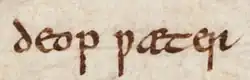 deop ƿæter